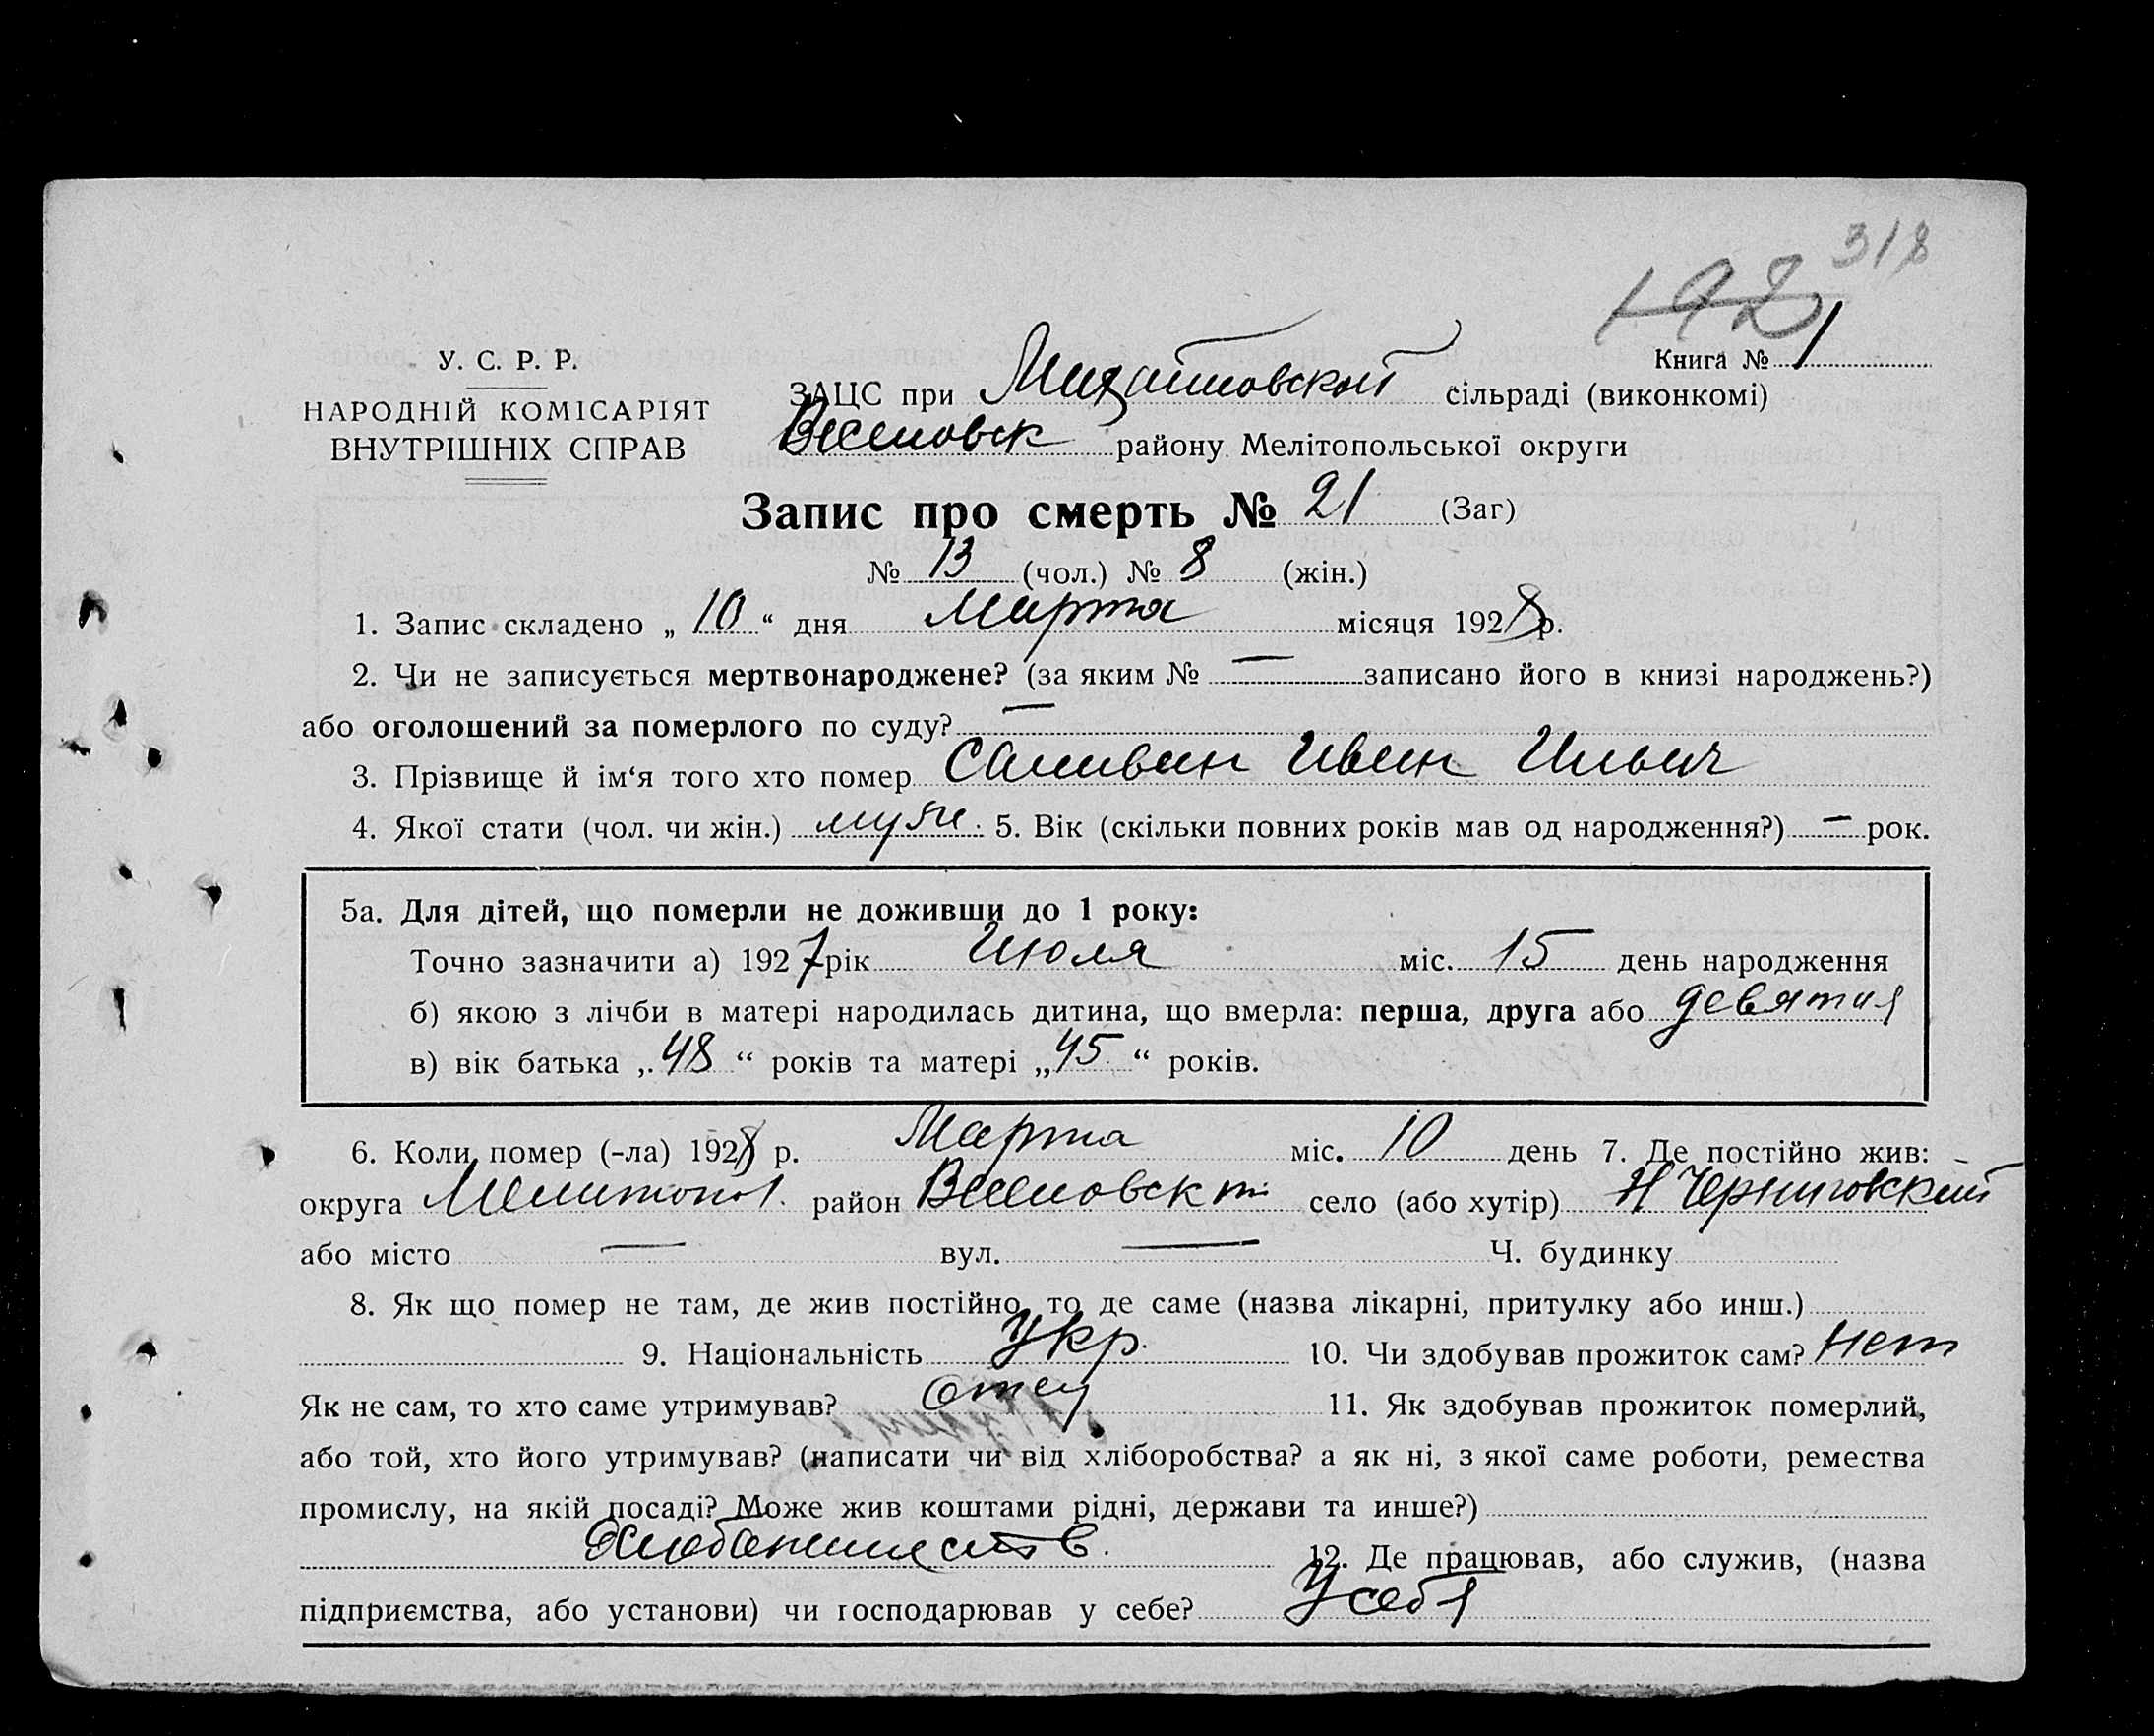 318
192
У. С. Р. Р.
Книга № 1
НАРОДНІЙ КОМІСАРІЯТ
ВНУТРІШНІХ СПРАВ
ЗАЦС при Михайловской сільраді (виконкомі)
Веселовск району Мелітопольської округи
Запис про смерть № 21 (Заг)
№ 13 (чол.) № 8 (жін.)
1. Запис складено „ 10 “ дня Марта місяця 1928 р.
2. Чи не записується мертвонароджене? (за яким № — записано його в книзі народжень?)
або оголошений за померлого по суду? —
3. Прізвище й ім‘я того хто помер Саливан Иван Ильич
4. Якої стати (чол. чи жін.) муж. 5. Вік (скільки повних років мав од народження?) — рок.
5а. Для дітей, що померли не доживши до 1 року:
Точно зазначити а) 1927 рік Июля міс. 15 день народження
б) якою з лічби в матері народилась дитина, що вмерла: перша, друга або девятая
в) вік батька „ 48 “ років та матері „ 45 “ років.
6. Коли помер (-ла) 1928 р. Марта міс. 10 день 7. Де постійно жив:
округа Мелитопол. район Веселовск село (або хутір) Н Черниговский
або місто — вул. — Ч. будинку
8. Як що помер не там, де жив постійно, то де саме (назва лікарні, притулку або инш.)
9. Національність Укр. 10. Чи здобував прожиток сам? Нет
Як не сам, то хто саме утримував? Отец 11. Як здобував прожиток померлий,
або той, хто його утримував? (написати чи від хліборобства? а як ні, з якої саме роботи, ремества
промислу, на якій посаді? Може жив коштами рідні, держави та инше?)
Хлебопашеств. 12. Де працював, або служив, (назва
підприємства, або установи) чи господарював у себе? У себя